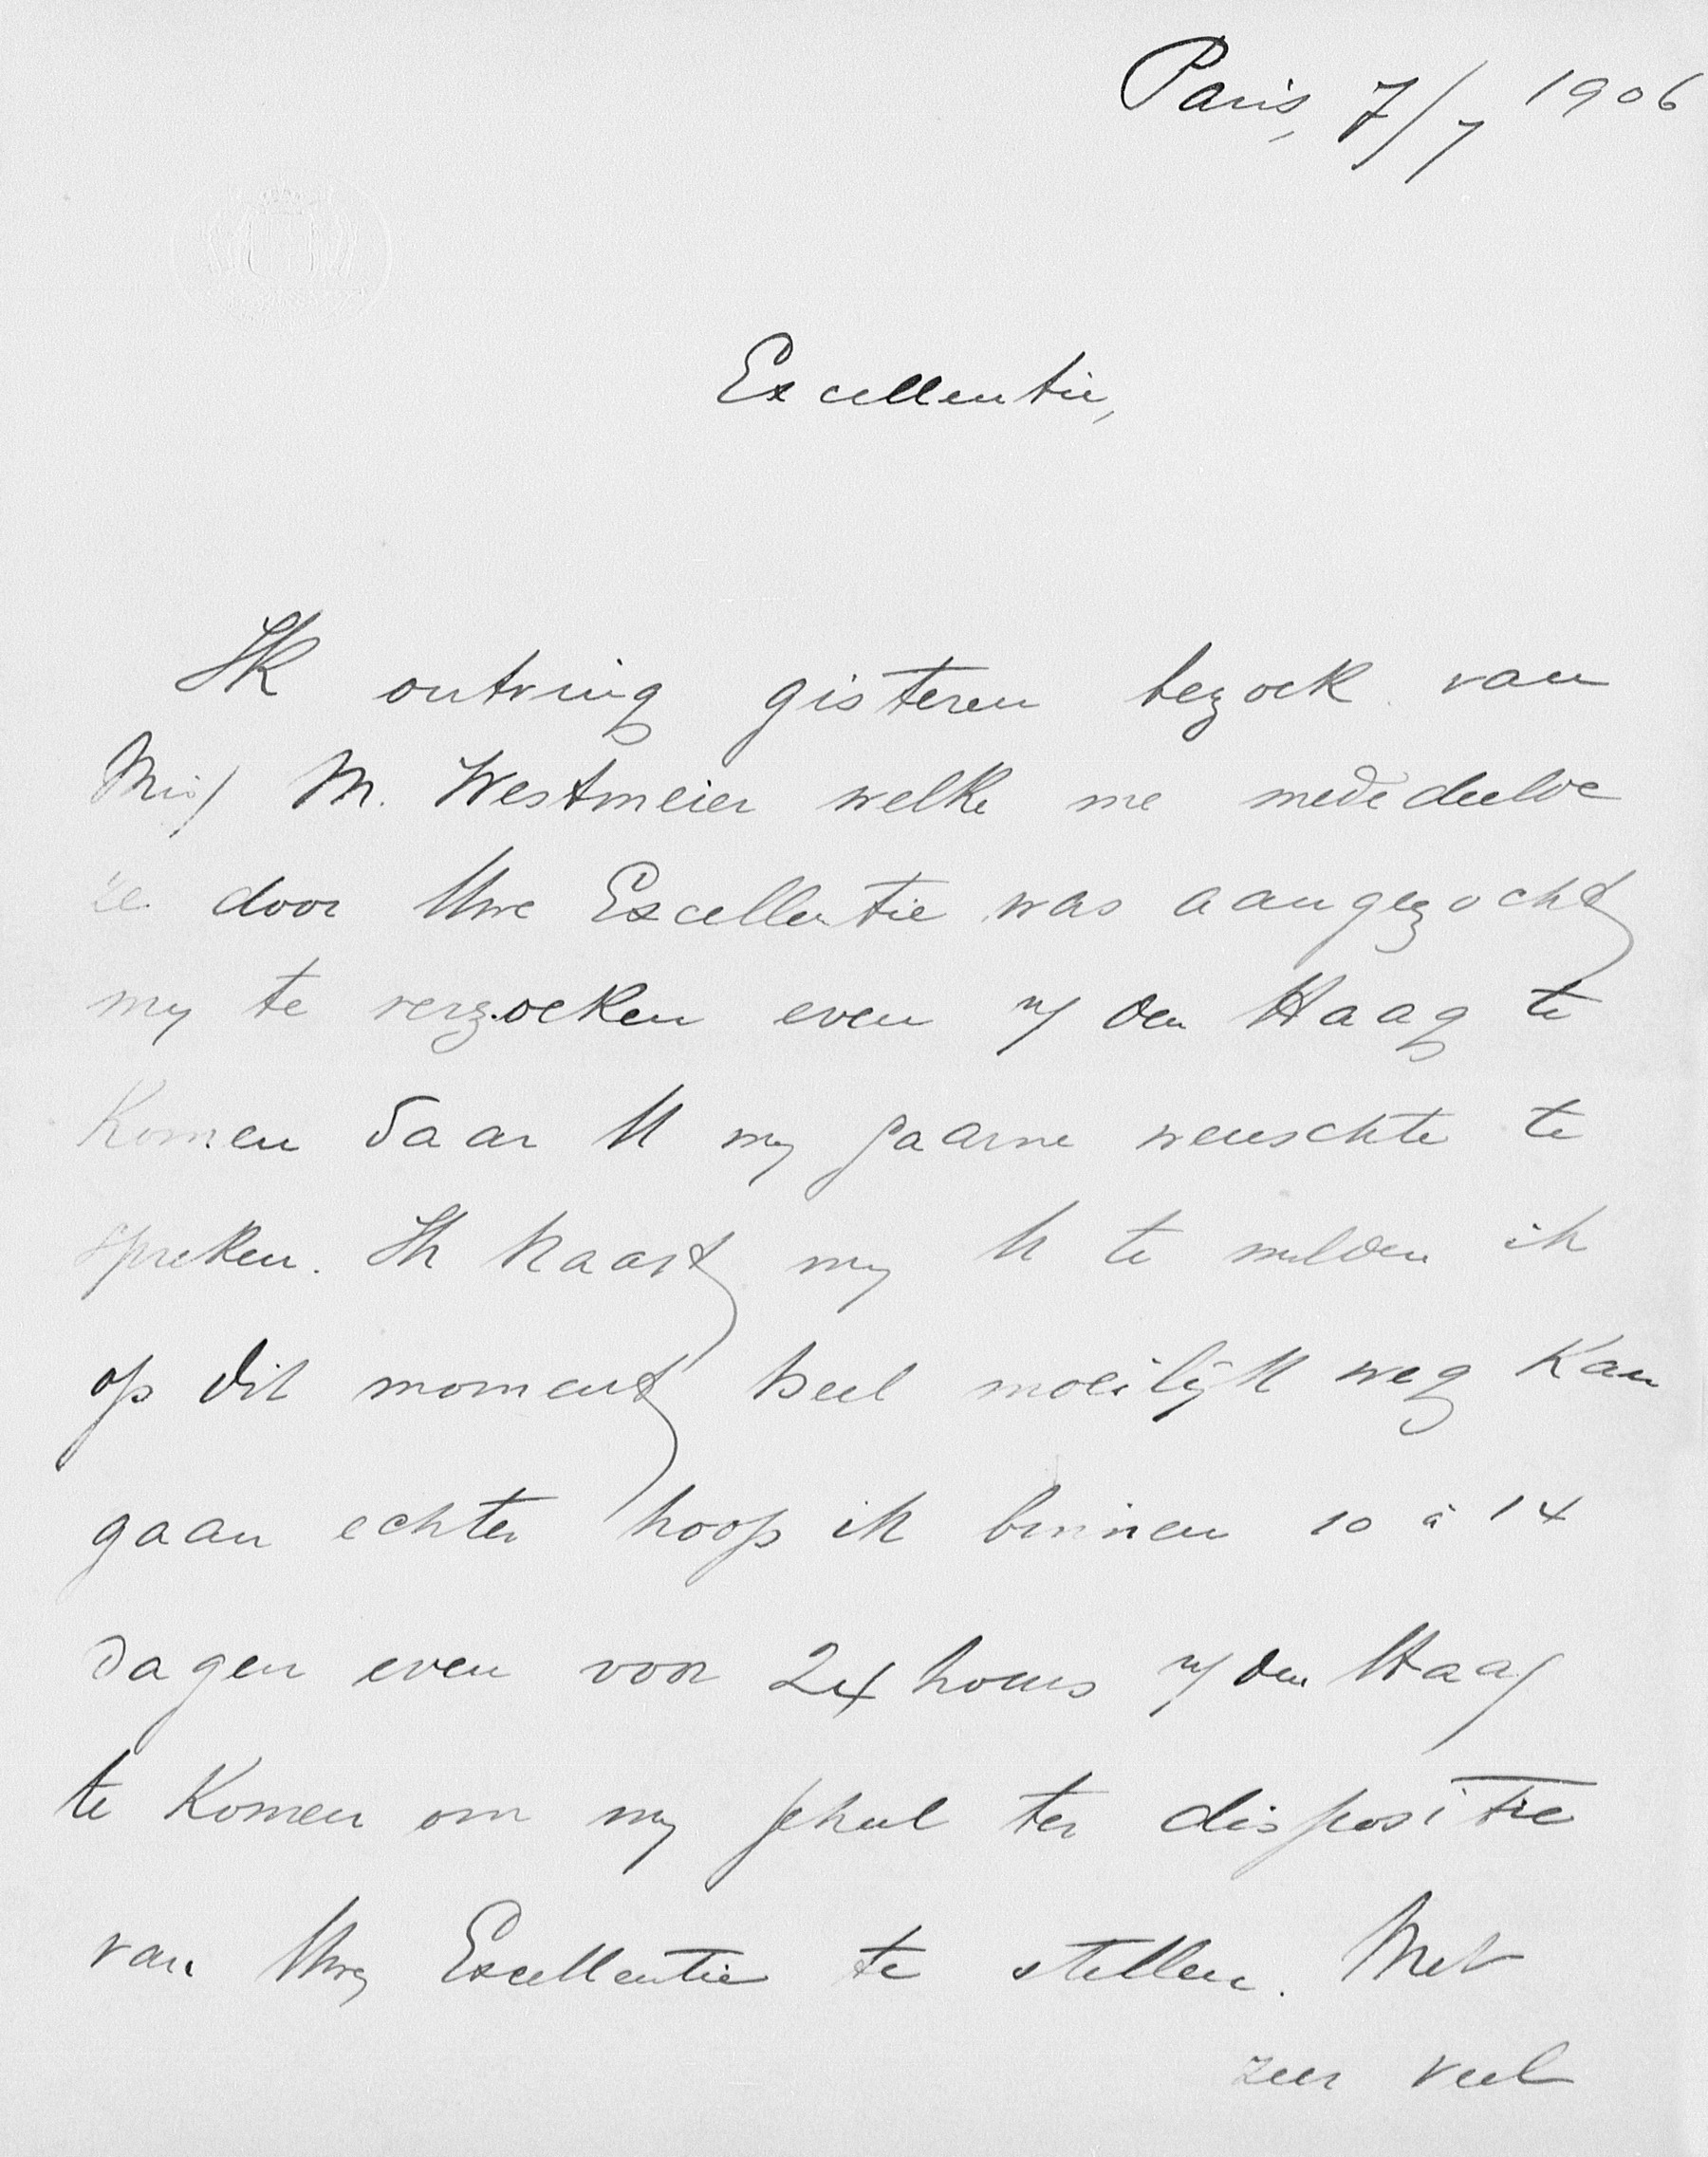 Paris, 7/7 1906
Excellentie,
Ik ontving gisteren bezoek van
Miss M. Westmeier welke me mededeelde
ze door Uwe Excellentie was aangezocht
my te verzoeken even n/ den Haag te
Komen daar U my gaarne wenschte te
spreken. Ik haast my U te melden ik
op dit moment heel moeilijk weg Kan
gaan echter hoop ik binnen 10 à 14
dagen even voor 24 hours n/ den Haag
te Komen om my geheel ter dispositie
van Uwe Excellentie te stellen. Met
zeer veel